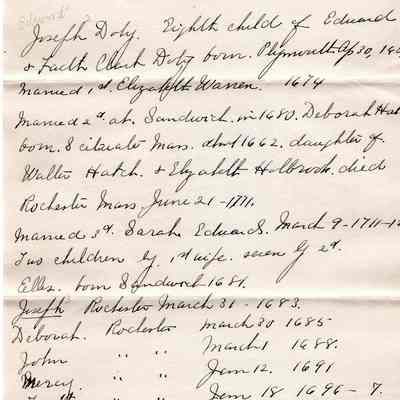 Edward
Joseph Doty. Eighth child of Edward
& Faith Clark Doty born. Plymouth Ap 30,
married 1st. Elizabeth Warren. 1674
Married 2d. at Sandwich. in 1680. Deborah Hat
born. Scituate Mass. abt 1662. daughter of
Walter Hatch. & Elizabeth Holbrook. died
Rochester Mass June 21-1711.
married 3d. Sarah Edwards. March 9-1711-12
Two children by 1st wife. seven by 2d.
Ellis. born Sandwich 1681.
Joseph Rochester March 31-1683.
Deborah. Rochester March 30 1685
John " " March 1 1688.
Mercy. " " Jan 12. 1691
" " Jan 18 1696-7.